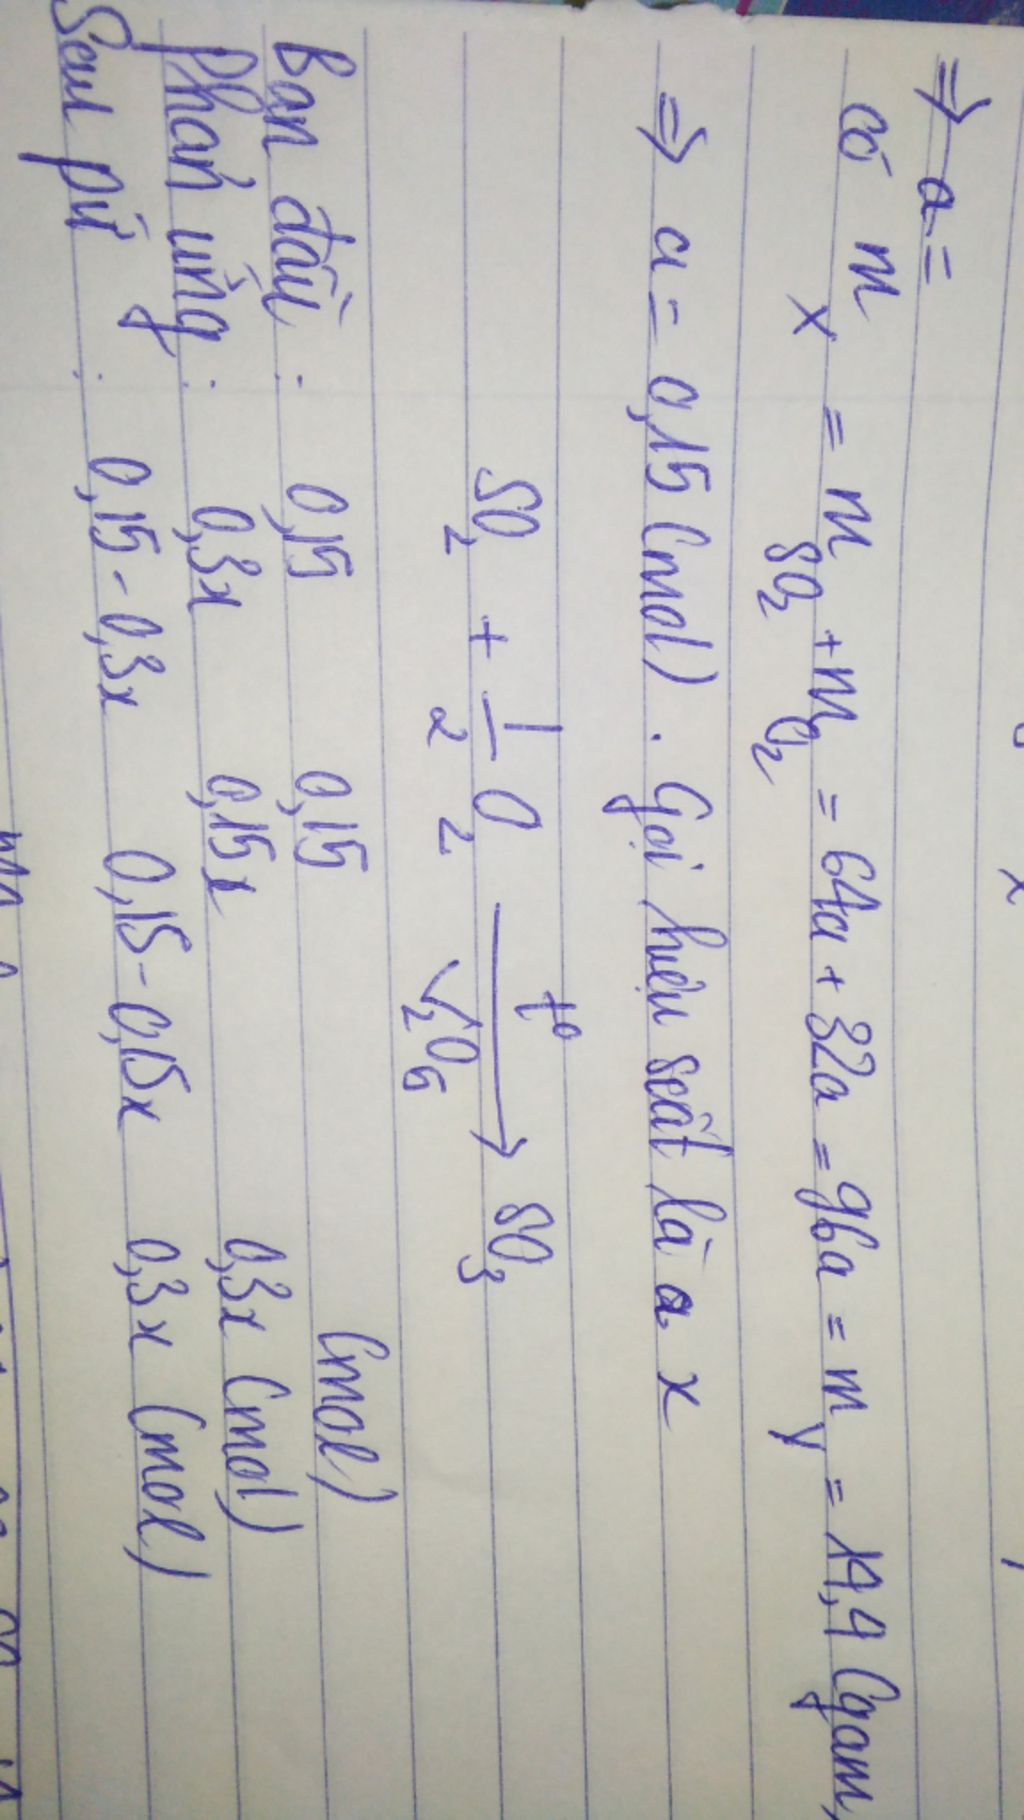 ⇒ a =
có m_X = m_SO₂ + m_O₂ = 64a + 32a = 96a = m_Y = 14,4 (gam)
⇒ a = 0,15 (mol). Gọi hiệu suất là a x
SO₂ + 1/2 O₂ →(t⁰, V₂O₅) SO₃
Ban đầu : 0,15 0,15 (mol)
Phản ứng : 0,3x 0,15x 0,3x (mol)
Sau pứ : 0,15 - 0,3x 0,15 - 0,15x 0,3x (mol)